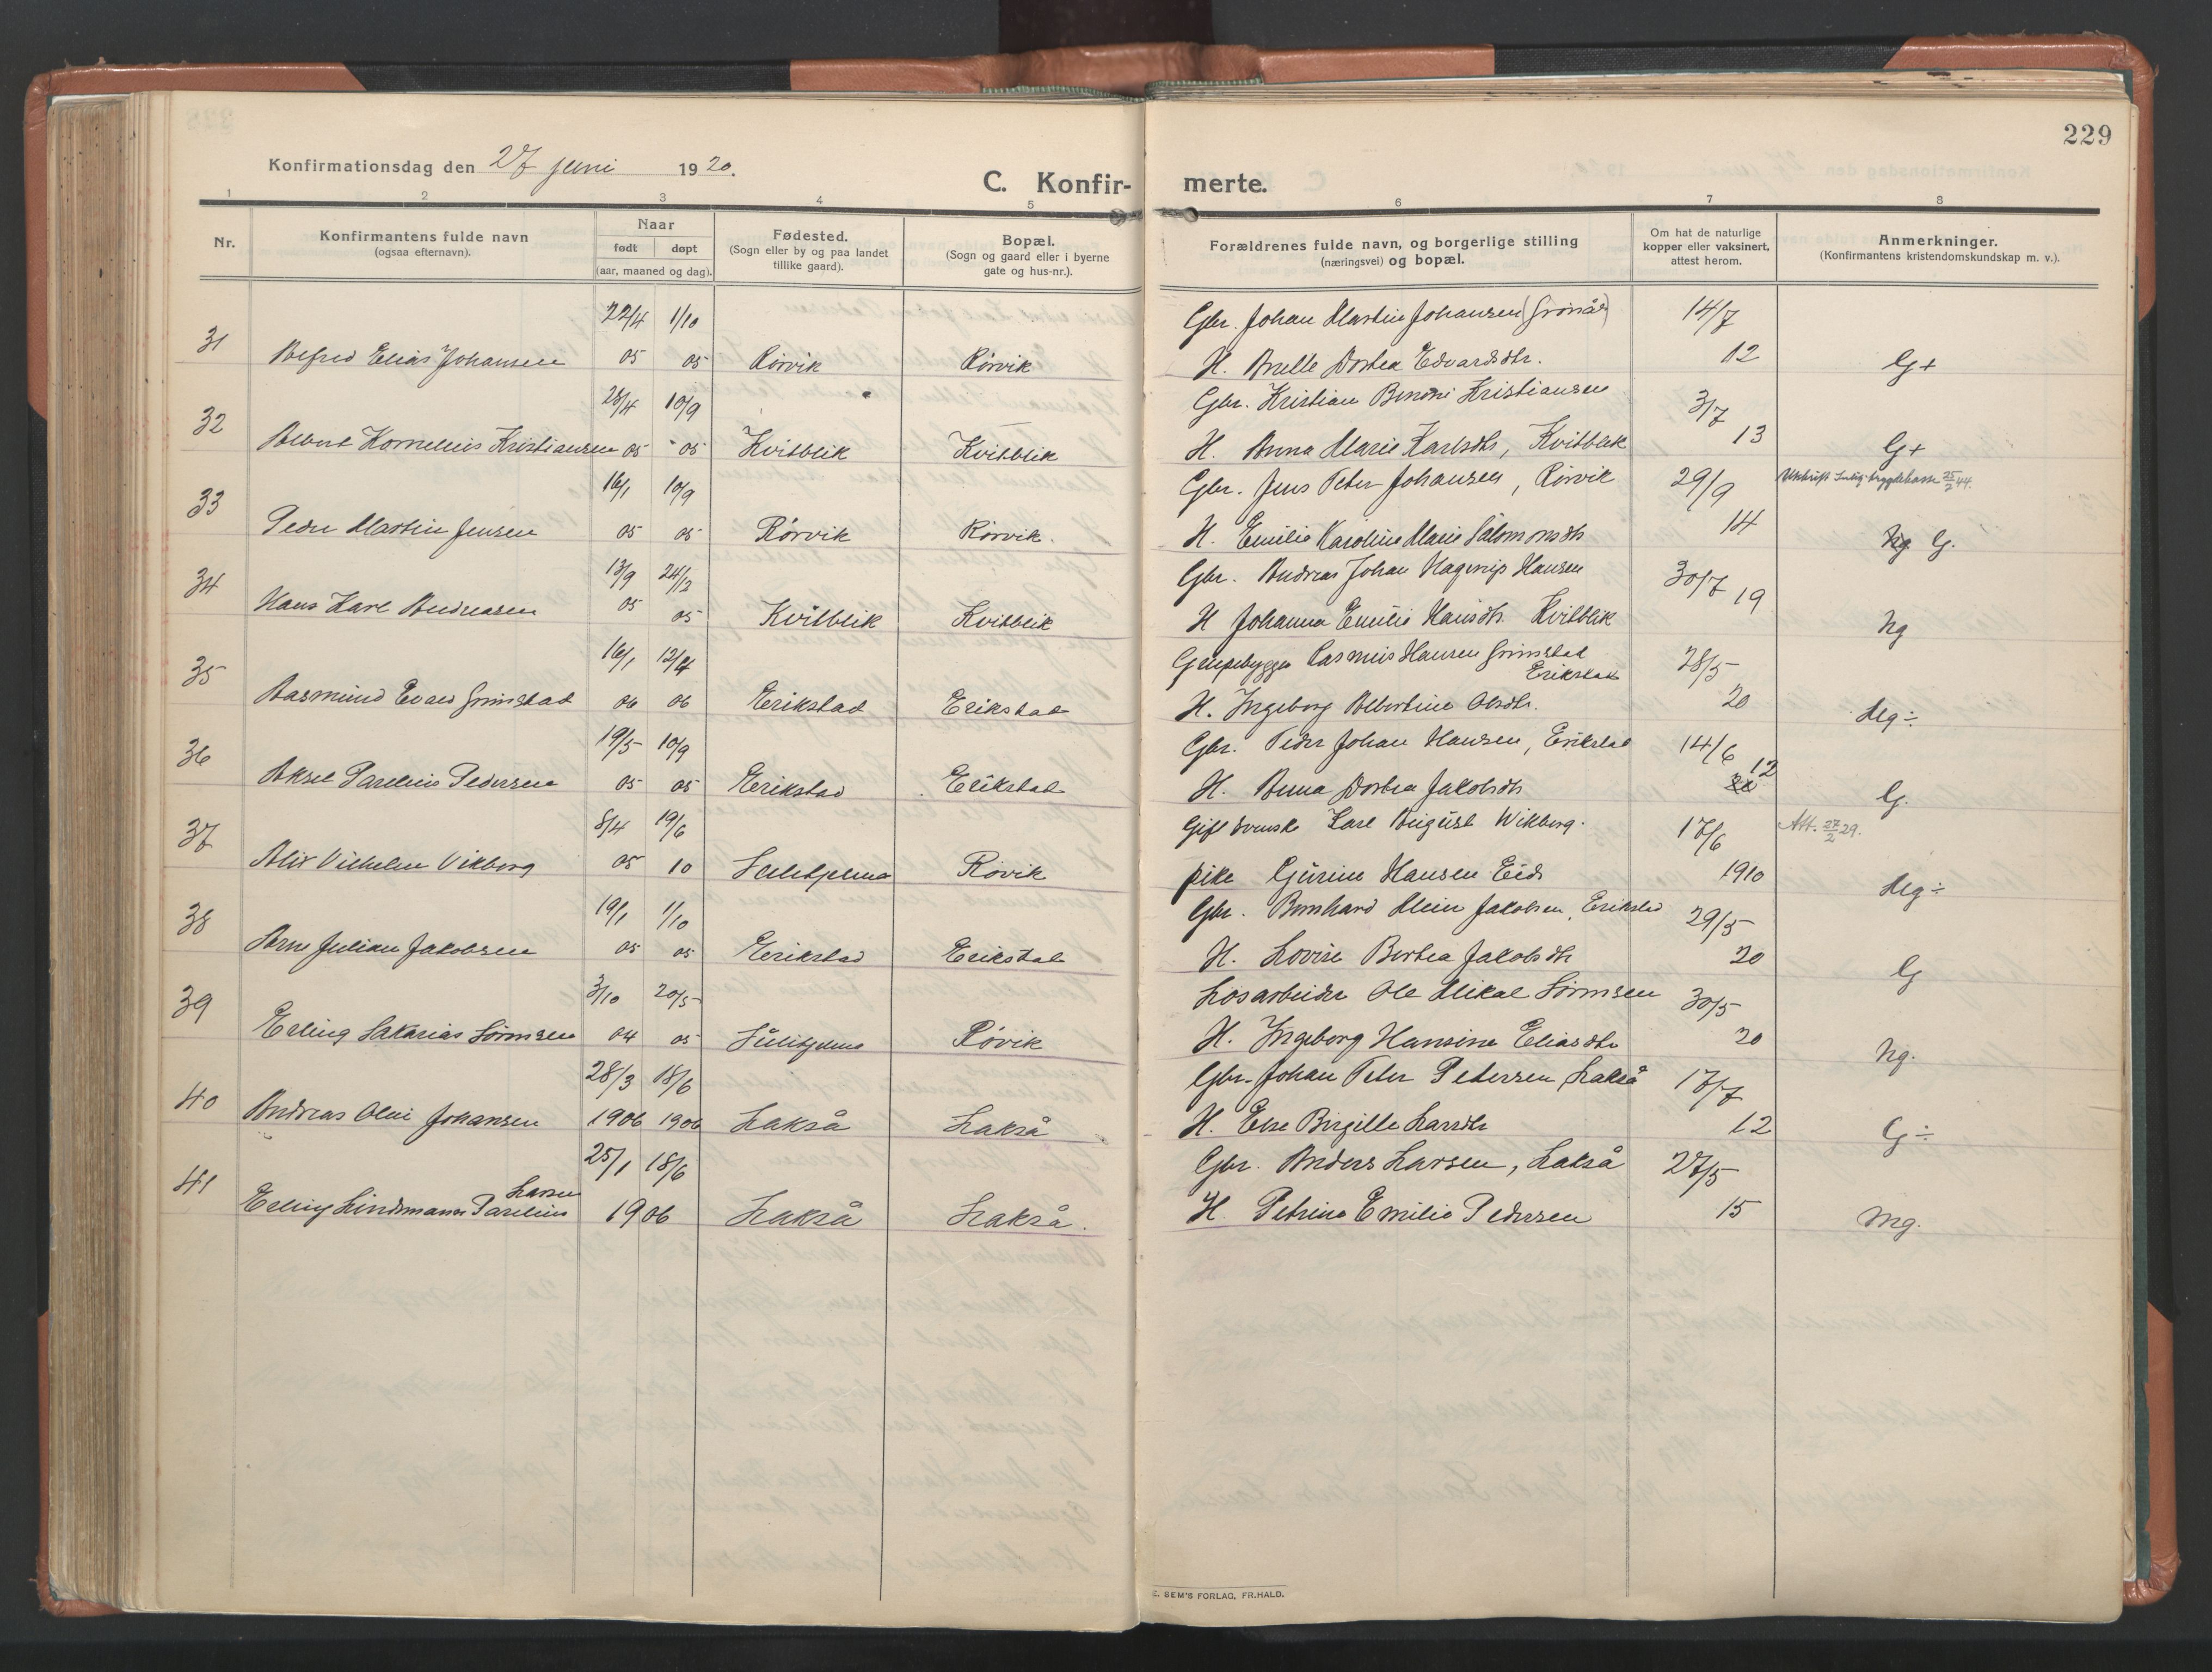 229
Konfirmationsdag den 27 juni 1920.
C. Konfir- merte.
1 2 3 4 5 6 7 8
Nr.
Konfirmantens fulde navn
(ogsaa efternavn).
Naar
født døpt
(aar, maaned og dag).
Fødested.
(Sogn eller by og paa landet
tillike gaard).
Bopæl.
(Sogn og gaard eller i byerne
gate og hus-nr.).
Forældrenes fulde navn, og borgerlige stilling
(næringsvei) og bopæl.
Om hat de naturlige
kopper eller vaksinert,
attest herom.
Anmerkninger.
(Konfirmantens kristendomskundskap m. v.).
22/4 1/10 Gbr. Johan Martin Johansen 14/7
31 Alfred Elias Johansen 05 05 Rörvik Rörvik H. Dortea Edvardsdtr. 12 G+
28/4 10/9 Gbr. Kristian Benoni Kristiansen 3/7
32 Albert Kornelius Kristiansen 05 05 Kvitblik Kvitblik H. Anna Marie Karlsdtr, Kvitblik 13 G+
16/1 10/9 Gbr. Jens Peter Johansen, Rörvik 29/9 25/2 44.
33 Peder Martin Jensen 05 05 Rörvik Rörvik. H. Emilie Karoline Marie Salomonsdtr 14 Ng G.
13/9 24/12 Gbr. Andreas Johan Hagerup Hansen 30/7
34 Hans Karl Andreasen 05 05 Kvitblik Kvitblik H Johanna Emilie Hansdtr. Kvitblik 19 Ng
16/1 12/4 Rasmus Hansen Grimstad 28/5
Erikstad
35 Aasmund Edvard Grimstad 06 06 Erikstad Erikstad H. Ingeborg Albertine Olsdtr. 20 Mg÷
19/5 10/9 Gbr. Peder Johan Hansen, Erikstad 14/6
12
36 Aksel Parelius Pedersen 05 05 Erikstad Erikstad H. Anna Dortea Jakobsdtr G.
8/4 19/6 Gift svenske Karl August Wikberg. 17/6 Att. 27/2 29.
37 Alix Vilhelm Vikberg 05 10 Sulitjelma Rövik pike Gurine Hansen Eide 1910 Mg÷
19/1 1/10 Gbr. Bernhard Mein Jakobsen, Erikstad 29/5
38 Arne Julian Jakobsen 05 05 Erikstad Erikstad H. Lovise Bertea Jakobsdtr 20 G
3/10 20/5 Losarbeider Ole Mikal Sörensen 30/5
39 Erling Sakarias Sörensen 04 05 Sulitjelma Rövik H. Ingeborg Hansine Eliasdtr 20 Ng.
28/3 18/6 Gbr. Johan Peter Pedersen, Lakså 17/7
40 Andreas Olai Johansen 1906 1906 Lakså Lakså H. Else Birgitte Larsdtr 12 G÷
25/1 18/6 Gbr. Anders Larsen, Lakså 27/5
Larsen
41 Erling Lindemann Parelius 1906 Lakså Lakså. H Petrine Emilie Pedersen 15 Mg.
E. SEM'S FORLAG, FR.HALD.